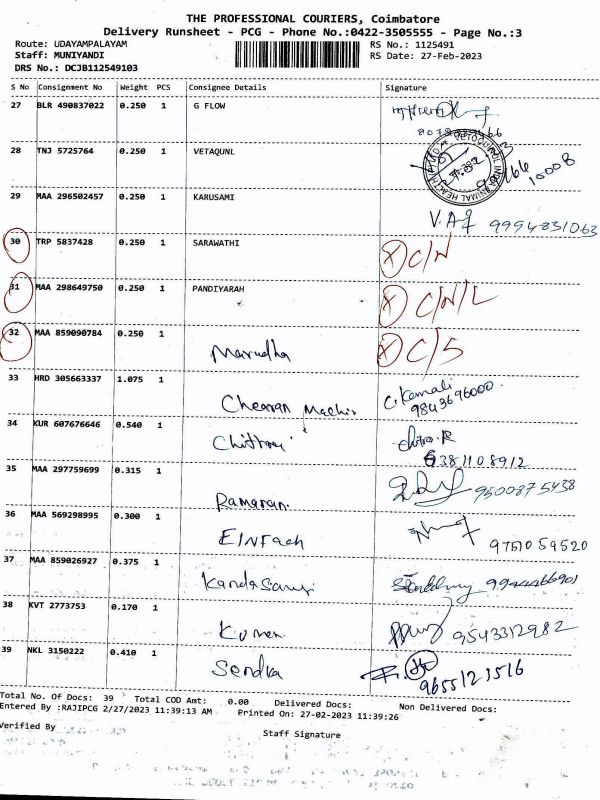 THE PROFESSIONAL COURIERS, Coimbatore
Delivery Runsheet - PCG - Phone No.:0422-3505555 - Page No.:3
Route: UDAYAMPALAYAM RS No.: 1125491
Staff: MUNIYANDI RS Date: 27-Feb-2023
DRS No.: DCJB112549103
S No Consignment No Weight PCS Consignee Details Signature
27 BLR 490837022 0.250 1 G FLOW
28 TNJ 5725764 0.250 1 VETAQUNL
29 MAA 296502457 0.250 1 KARUSAMI
V.A 9994831063
30 TRP 5837428 0.250 1 SARAWATHI X C/N
31 MAA 298649750 0.250 1 PANDIYARAH X C/N/L
32 MAA 859090784 0.250 1 Marudha X C/S
33 HRD 305663337 1.075 1 Chearan C. Kamali
9843696000
34 KUR 607676646 0.540 1 Chitra.R
6381108912
35 MAA 297759699 0.315 1 Ramanan. 9500875438
36 MAA 569298995 0.300 1 EINFach 9751059520
37 MAA 859026927 0.375 1 Kandasamy 9944466901
38 KVT 2773753 0.170 1 Kumar 9543312982
39 NKL 3150222 0.410 1 Sendha 9655121516
Total No. Of Docs: 39 Total COD Amt: 0.00 Delivered Docs: Non Delivered Docs:
Entered By :RAJIPCG 2/27/2023 11:39:13 AM Printed On: 27-02-2023 11:39:26
Verified By Staff Signature